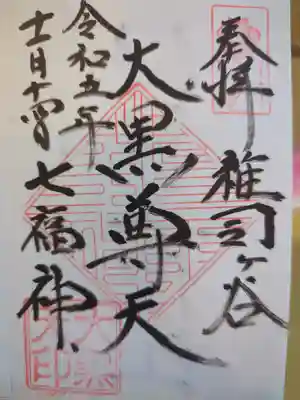 奉拝 雑司ケ谷
大黒尊天
七福神
令和五年
十二月十四日